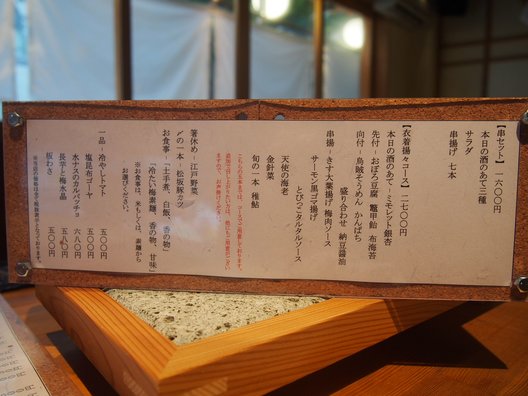 【串セット】 一六〇〇円
本日の酒のあて三種
サラダ
串揚げ 七本
【衣着揚々コース】 二七〇〇円
本日の酒のあて－ミモレット銀杏
先付－おぼろ豆腐 鼈甲餡 布海苔
向付－烏賊そうめん かんぱち
盛り合わせ 納豆醤油
串揚－きす大葉揚げ 梅肉ソース
とびっこタルタルソース
サーモン黒ゴマ揚げ
天使の海老
金針菜
旬の一本 稚鮎
箸休め－江戸野菜
〆の一本－松阪豚カツ
お食事－「土手煮、白飯、香の物」
「冷たい梅素麺、香の物、甘味」
※お食事は、米もしくは、素麺から
お選びください。
一品－冷やしトマト 五〇〇円
塩昆布ゴーヤ 五〇〇円
水ナスのカルパッチョ 六八〇円
長芋と梅水晶 五八〇円
板わさ 五〇〇円